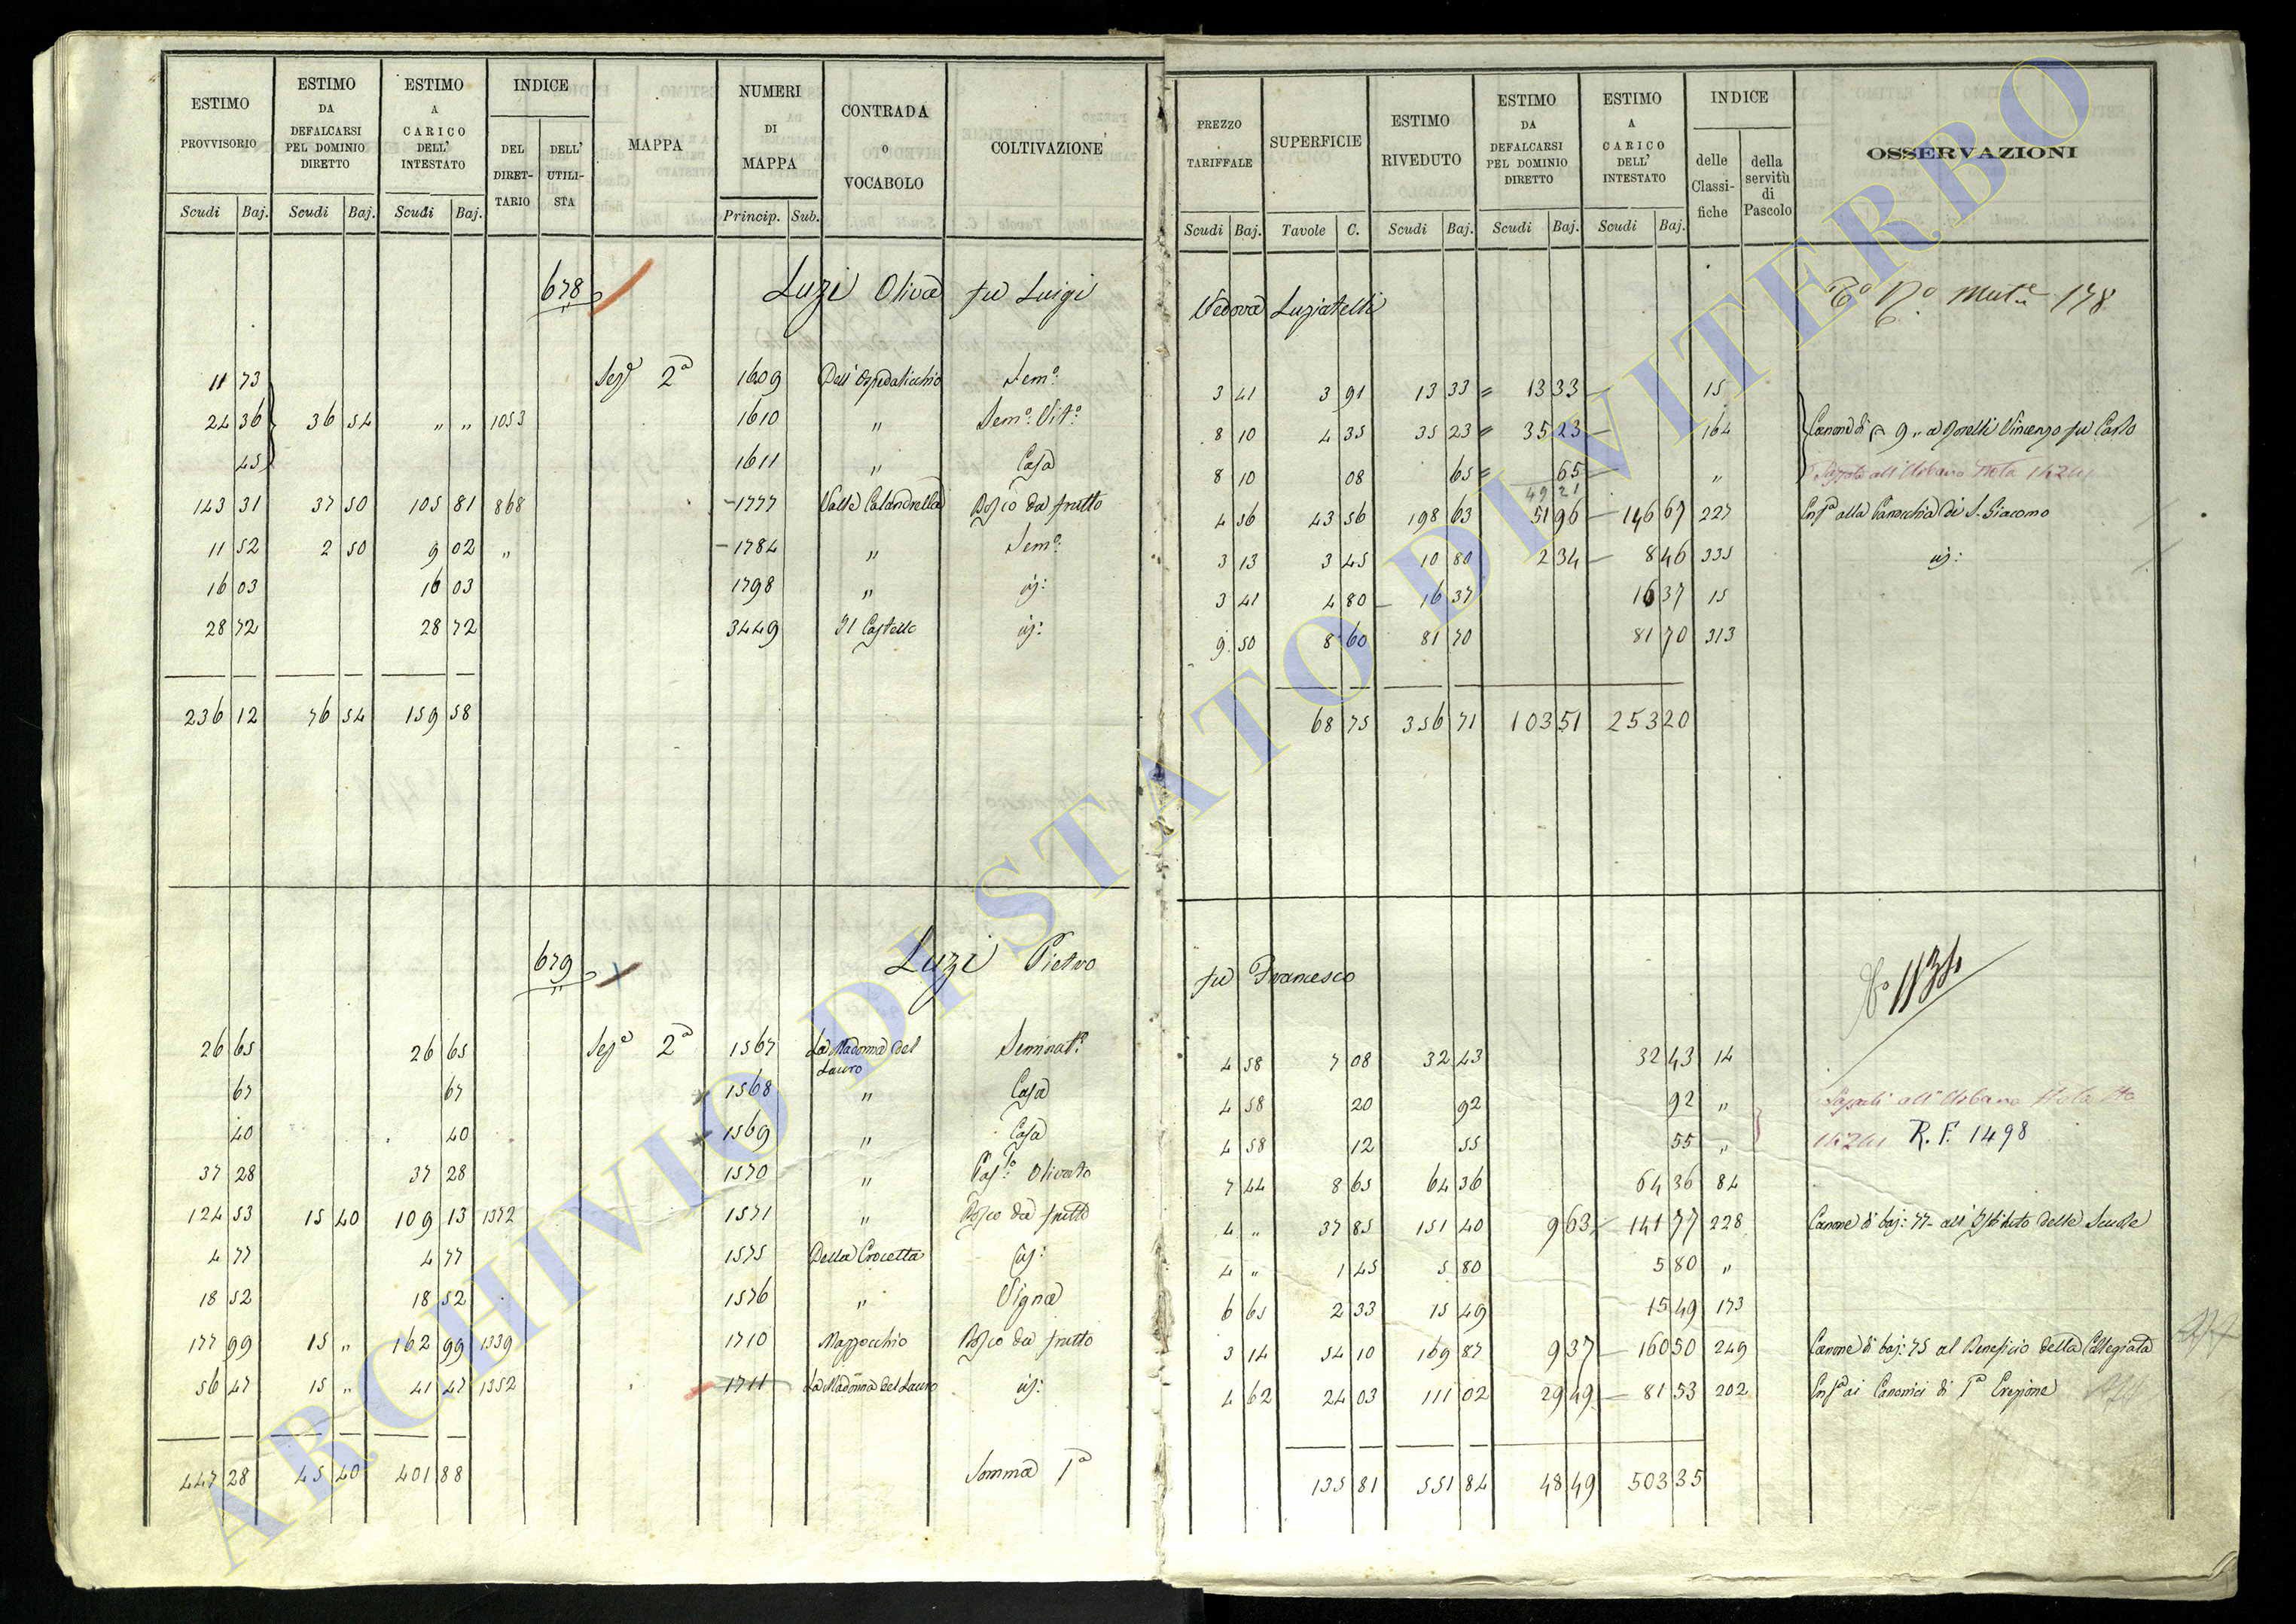 ESTIMO PROVVISORIO
ESTIMO DA DEFALCARSI PEL DOMINIO DIRETTO
ESTIMO A CARICO DELL' INTESTATO
INDICE
DEL DIRET-TARIO
DELL' UTILI-STA
MAPPA
NUMERI DI MAPPA
CONTRADA O VOCABOLO
COLTIVAZIONE
Scudi Baj. Scudi Baj. Scudi Baj. Princip. Sub.
PREZZO TARIFFALE
SUPERFICIE
ESTIMO RIVEDUTO
ESTIMO DA DEFALCARSI PEL DOMINIO DIRETTO
ESTIMO A CARICO DELL' INTESTATO
INDICE
delle Classi-fiche
della servitù di Pascolo
OSSERVAZIONI
Scudi Baj. Tavole C. Scudi Baj. Scudi Baj. Scudi Baj.
678 Luzi Oliva fu Luigi Vedova Luziatelli 178
11 73 Seze 2a 1609 Dell' Ospedalicchio Semo: 3 41 3 91 13 33 = 13 33 — 15
24 36 36 54 " " 1053 1610 " Semo: Vito: 8 10 4 35 35 23 = 35 23 — 164 Canone di 9 " a Borelli Vincenzo fu Carlo
45 1611 " Casa 8 10 08 65 = 65 — "
49 21
143 31 37 50 105 81 868 – 1777 Valle Calandrella Bosco da frutto 4 56 43 56 198 63 51 96 — 146 67 227 Enfa alla Parocchia di S. Giacomo
11 52 2 50 9 02 " – 1784 " Semo: 3 13 3 45 10 80 2 34 — 8 46 335 id:
16 03 16 03 1798 " id: 3 41 4 80 16 37 16 37 15
28 72 28 72 3449 Il Castello id: 9 50 8 60 81 70 81 70 313
236 12 76 54 159 58 68 75 356 71 103 51 253 20
679 Luzi Pietro fu Francesco
26 65 26 65 Sezе 2a 1567 La Madonna del Lauro Seminato: 4 58 7 08 32 43 32 43 14
67 67 1568 " Casa 4 58 20 92 92 "
40 40 1569 " Casa 4 58 12 55 55 " R. F. 1498
37 28 37 28 1570 " Paso: Olivato 7 44 8 65 64 36 64 36 84
124 53 15 40 109 13 1372 1571 " Bosco da frutto 4 " 37 85 151 40 9 63 — 141 77 228 Canone di baj: 77 – all' Istituto delle Scuole
4 77 4 77 1575 Della Crocetta id: 4 " 1 45 5 80 5 80 "
18 52 18 52 1576 " Vigna 6 65 2 33 15 49 15 49 173
177 99 15 " 162 99 1339 1710 Mazzocchio Bosco da frutto 3 14 54 10 169 87 9 37 — 160 50 249 Canone di baj: 75 al Beneficio della Collegiata
56 47 15 " 41 47 1352 1711 La Madonna del Lauro id: 4 62 24 03 111 02 29 49 — 81 53 202 Enfa ai Canonici di 1a Erezione
447 28 45 40 401 88 Somma 1a 135 81 551 84 48 49 503 35
ARCHIVIO DI STATO DI VITERBO